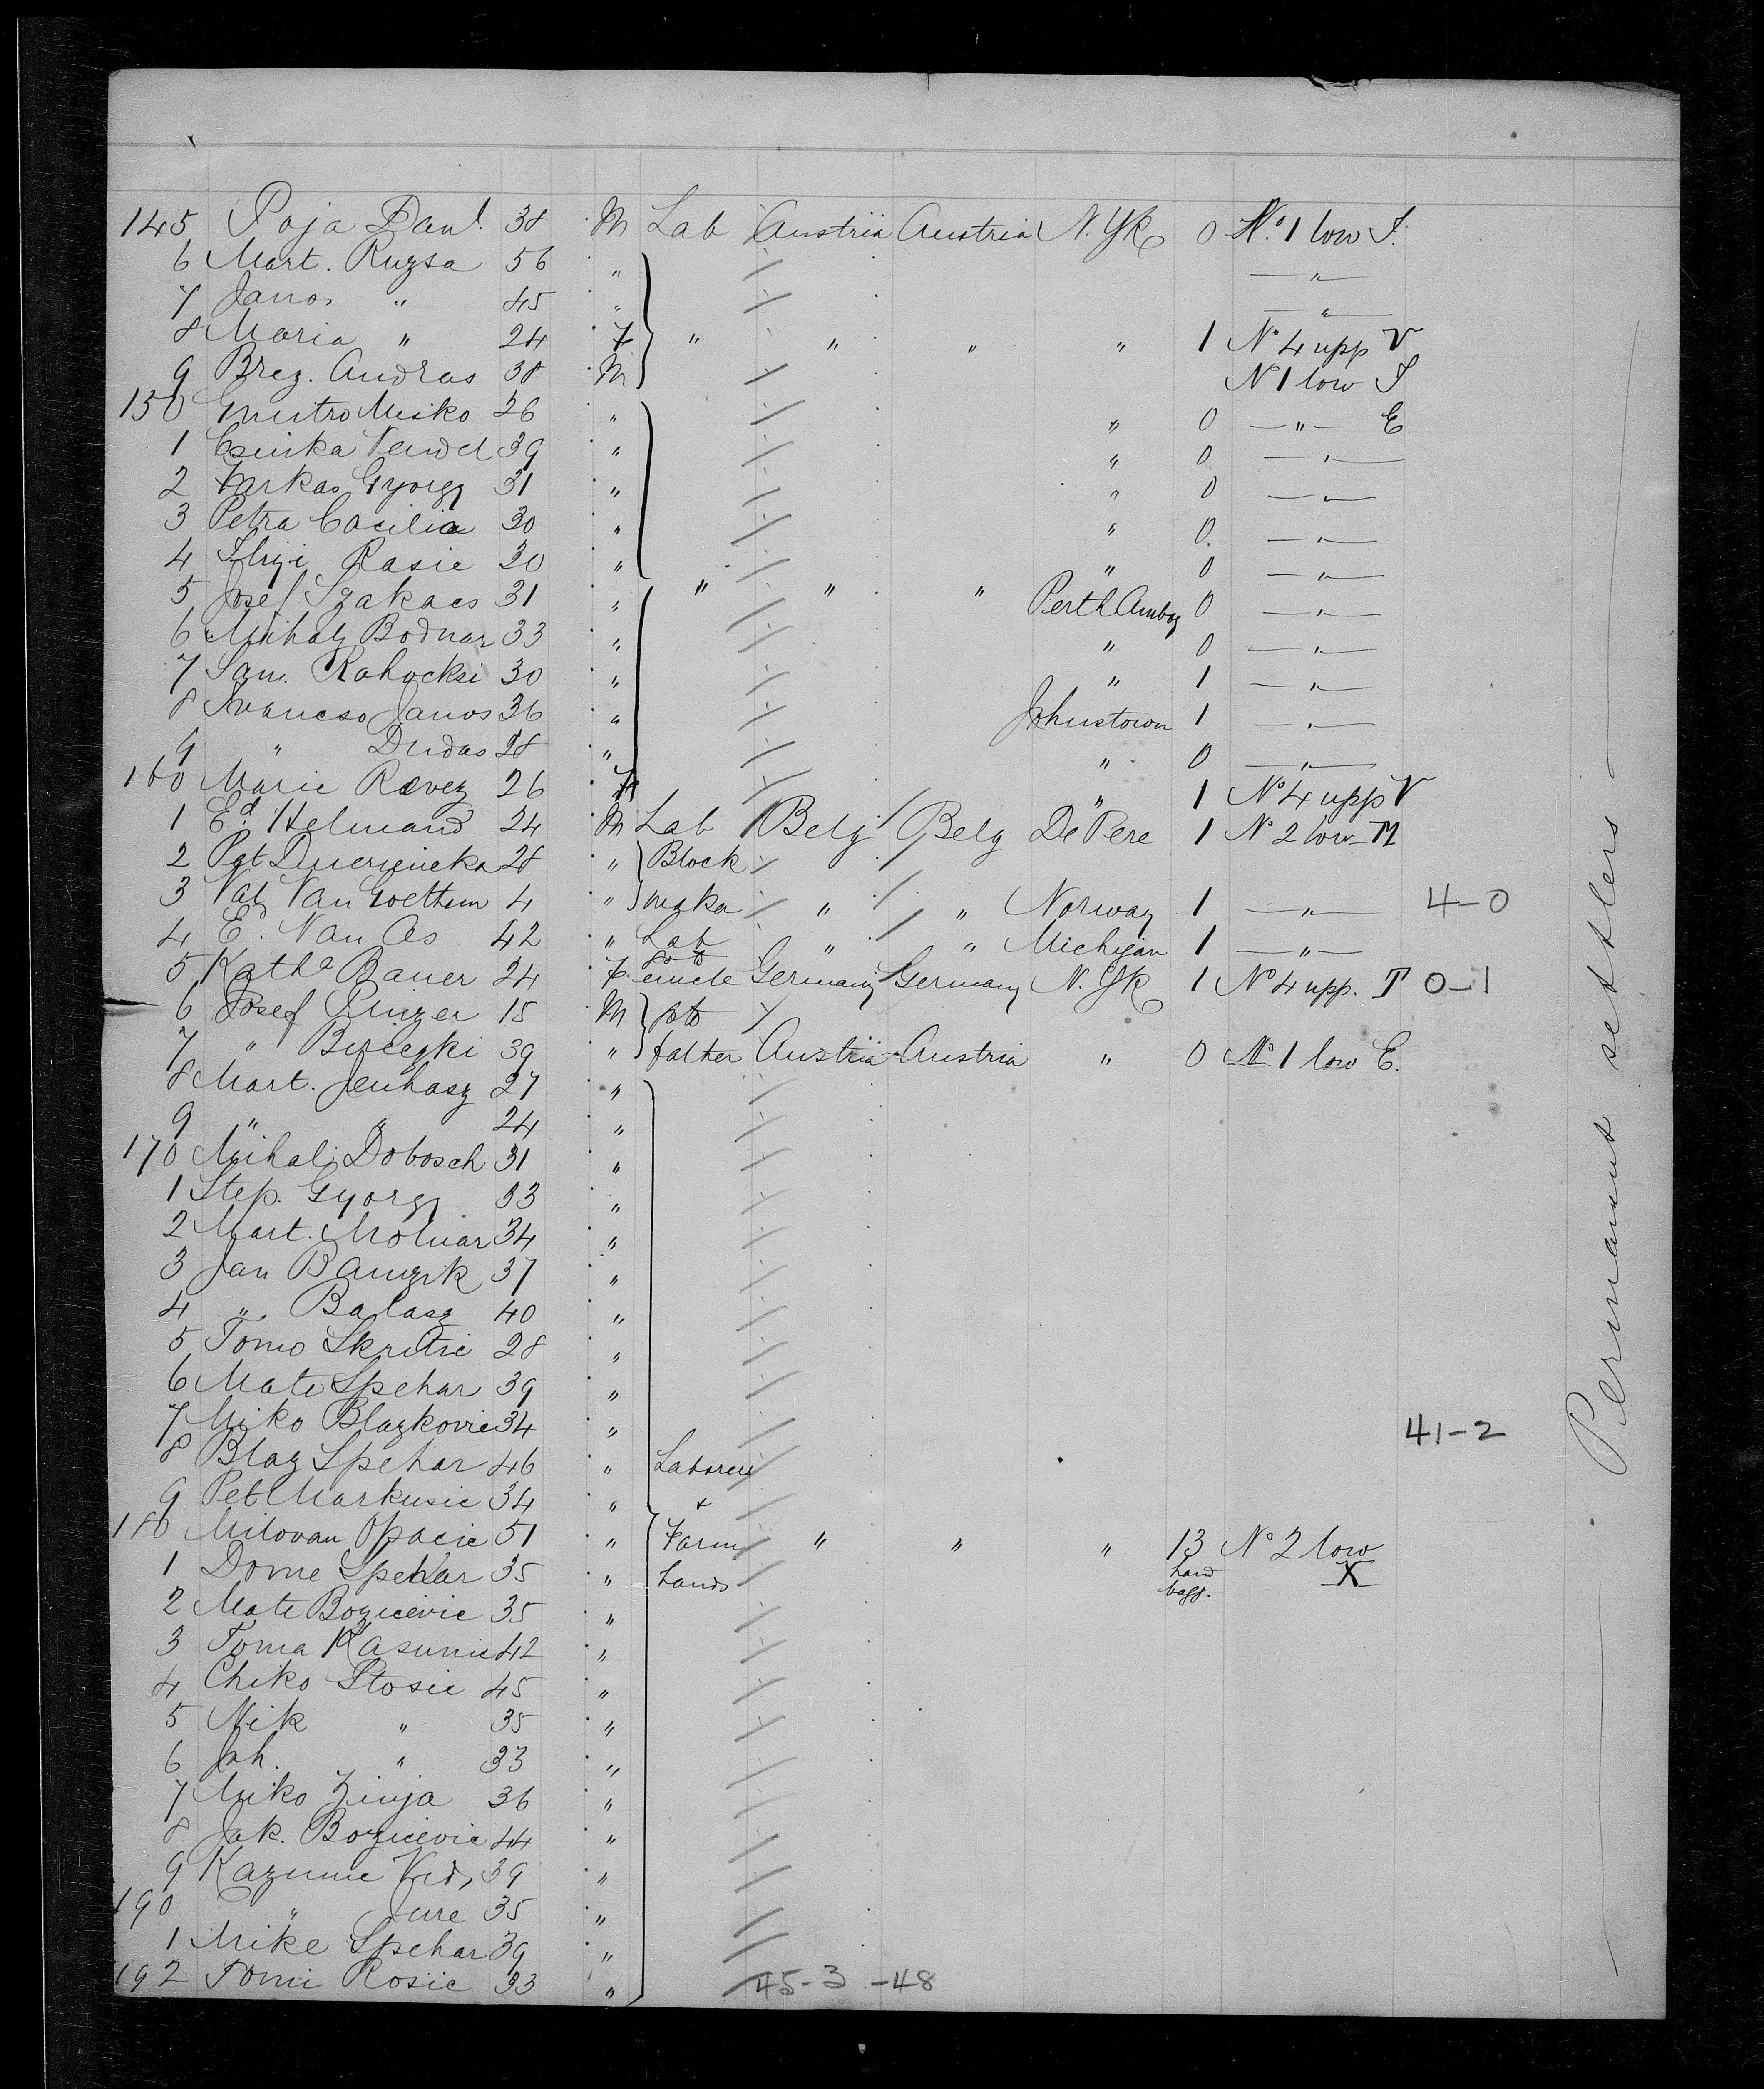 145 Poja Danl. 38 M Lab Austria Austria N. Yk 0 No. 1 low I.
6 Mart. Ruzsa 56 " —"—
7 Janos " 45 " —"—
8 Maria " 24 F " " " " 1 No 4 upp V
9 Brez. Andras 38 M N 1 low I
150 Gmitro Miko 26 " " 0 —"— E
1 39 " " 0 —"—
2 Farkas Gyorgy 31 " " 0 —"—
3 Petra Cacilia 30 " " 0. —"—
4 Rasic 30 " " 0 —"—
5 Josef Szakacs 31 " " " " Perth Amboy 0 —"—
6 Mihaly Bodnar 33 " " 0 —"—
7 Sam. Rahocksi 30 " " 1 —"—
8 Ivancso Janos 36 " Johnstown 1 —"—
9 " Dudas 28 " " 0 —"—
160 Marie Ravez 26 F " 1 No 4 upp V
1 Ed. Helmand 24 M Lab Belg Belg De Pere 1 No 2 low M
2 Pet 28 " Block
3 Val Van Goethem 4 " maka " " Norway 1 —"— 4-0
4 Ed. Van As 42 " Lab " " Michigan 1 —"—
5 Katha Bauer 24 F Germany Germany N. Yk 1 No 4 upp. T 0-1
6 Josef 15 M
7 " 39 " Austria Austria " 0 No 1 low E.
8 Mart. Jenhasz 27 "
9 " " 24 "
170 Mihali Dobosch 31 "
1 Step. Gyorgy 33 "
2 Mart. Molnar 34 "
3 Jan Bamzik 37 "
4 " Balasz 40 "
5 Tomo Skritic 28 "
6 Mate Spehar 39 "
7 Miko Blazkovic 34 " 41-2
8 Blaz Spehar 46 " Laborers
9 Pet Markusic 34 " +
180 Milovan Opacic 51 " Farm " " " 13 No 2 low
1 Dome Spehar 35 " hands hand bagg. X
2 Mate Bozicevic 35 "
3 Toma Kasunic 42 "
4 Chiko Stosic 45 "
5 Nik " 35 "
6 Joh. " 33 "
7 Miko Zinja 36 "
8 Jak. Bozicevic 44 "
9 Kazunic Vid, 39 "
190 " Jure 35 "
1 Mike Spehar 39 "
192 Tomi Rosic 33 " 45-3-48
Permanent settlers